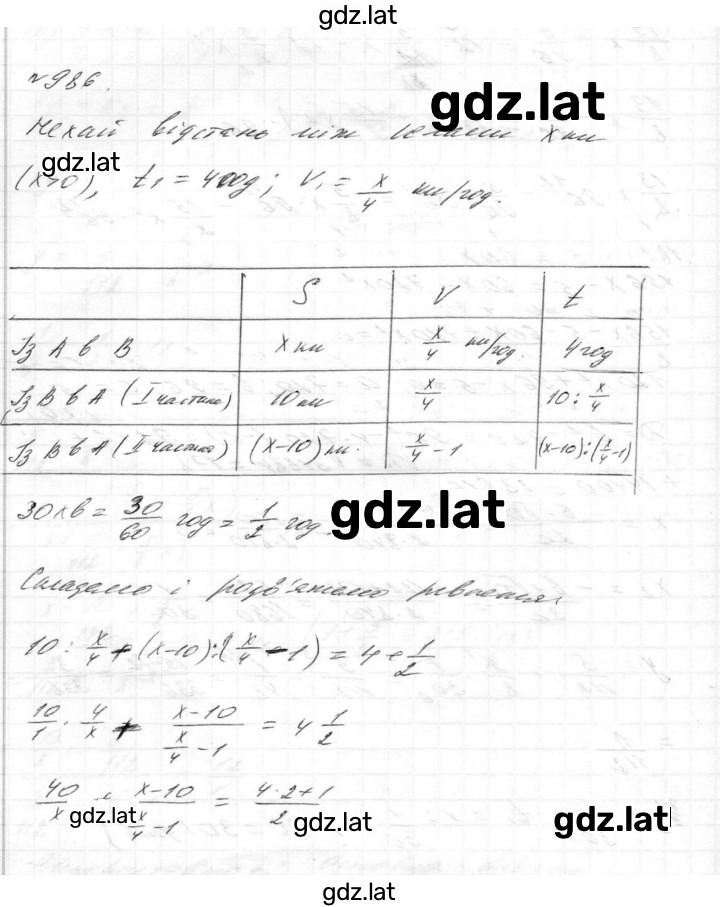 gdz.lat
№986.
gdz.lat
Нехай відстань між селами x км
gdz.lat
(x>0), t₁ = 4 год; V₁ = x/4 км/год.
S V t
Із А в В x км x/4 км/год. 4 год
Із В в А (I частина) 10 км x/4 10 : x/4
Із В в А (II частина) (x-10) км. x/4 - 1 (x-10):(x/4-1)
30 хв = 30/60 год = 1/2 год.
gdz.lat
Складемо і розв'яжемо рівняння:
10 : x/4 + (x-10):(x/4 - 1) = 4 + 1/2
10/1 · 4/x + (x-10)/(x/4 - 1) = 4 1/2
40/x + (x-10)/(x/4 - 1) = (4·2+1)/2
gdz.lat
gdz.lat
gdz.lat
gdz.lat